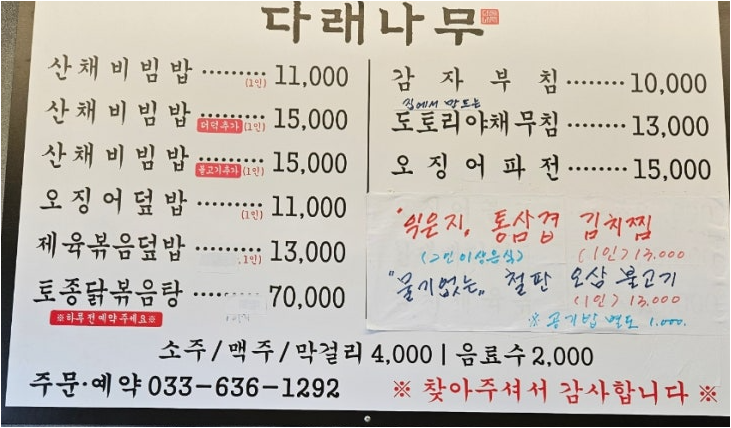 다래나무
산채비빔밥 ········· (1인) 11,000
산채비빔밥 ········· 더덕추가 (1인) 15,000
산채비빔밥 ········· 불고기추가 (1인) 15,000
오징어덮밥 ········· (1인) 11,000
제육볶음덮밥 ········· 1인) 13,000
토종닭볶음탕 ········· 70,000
※하루전예약주세요※
감자부침 ········ 10,000
집에서 만드는
도토리야채무침 ········ 13,000
오징어파전 ········ 15,000
"익은지, 통삼겹 김치찜
(2인이상음식) (1인) 13.000
"물기없는" 철판 오삼 불고기
(1인) 13.000
※ 공기밥 별도 1.000.
소주/맥주/막걸리 4,000 | 음료수 2,000
주문·예약 033-636-1292 ※ 찾아주셔서 감사합니다 ※